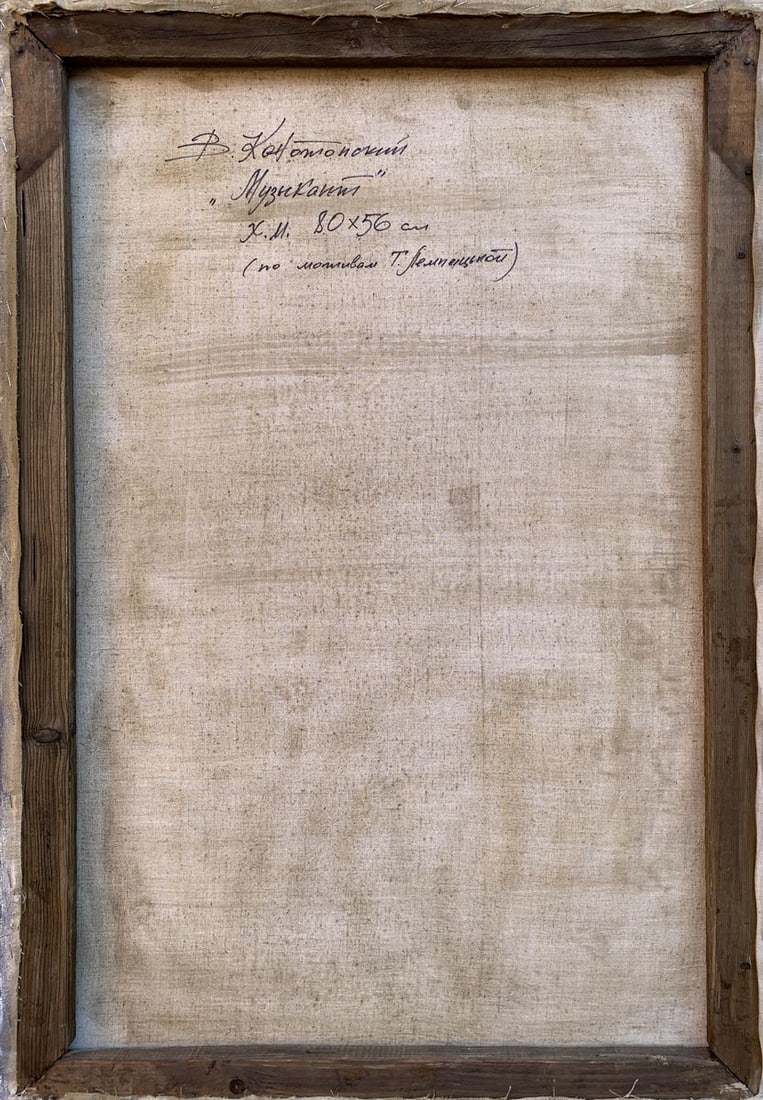 В. Конотопский
„Музыкант"
х.м. 80×56 см
(по мотивам Т. Лемпицкой)